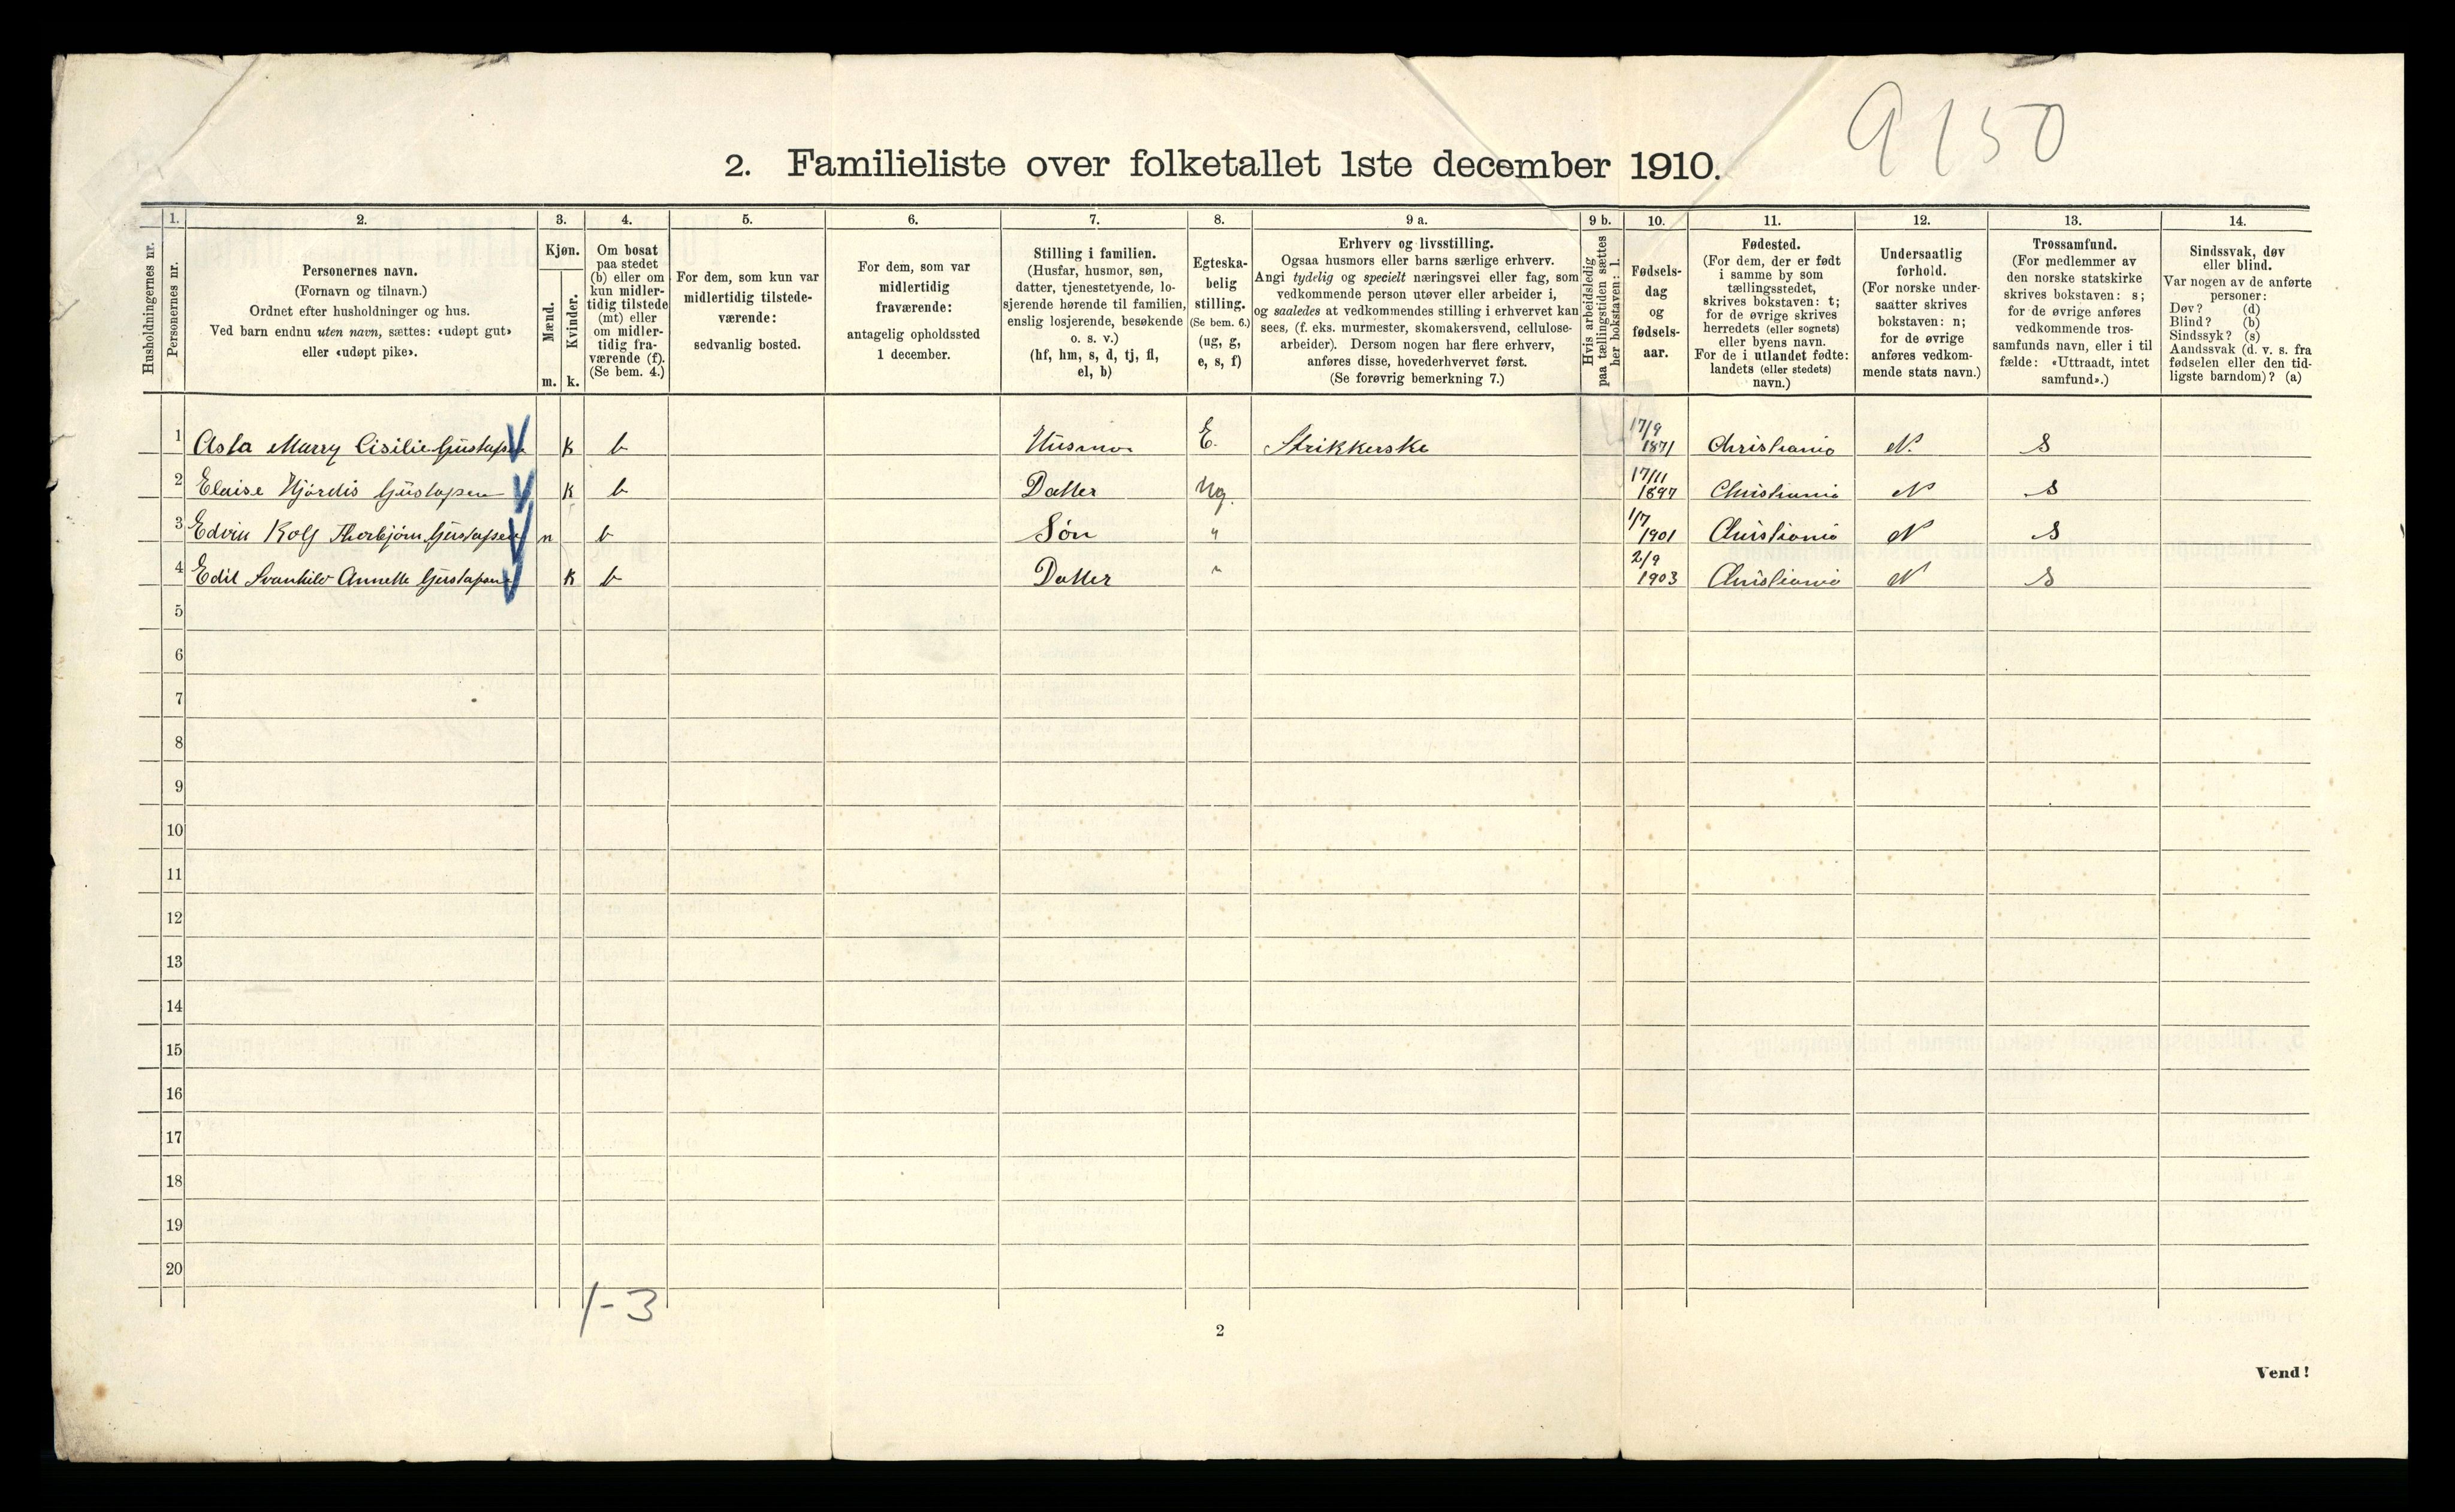 9150
2. Familieliste over folketallet 1ste december 1910.
1. 2. 3. 4. 5. 6. 7. 8. 9 a. 9 b. 10. 11. 12. 13. 14.
Husholdningernes nr.
Personernes nr.
Personernes navn.
(Fornavn og tilnavn.)
Ordnet efter husholdninger og hus.
Ved barn endnu uten navn, sættes: «udøpt gut»
eller «udøpt pike».
Kjøn.
Mænd.
Kvinder.
m. k.
Om bosat
paa stedet
(b) eller om
kun midler-
tidig tilstede
(mt) eller
om midler-
tidig fra-
værende (f).
(Se bem. 4.)
For dem, som kun var
midlertidig tilstede-
værende:
sedvanlig bosted.
For dem, som var
midlertidig
fraværende:
antagelig opholdssted
1 december.
Stilling i familien.
(Husfar, husmor, søn,
datter, tjenestetyende, lo-
sjerende hørende til familien,
enslig losjerende, besøkende
o. s. v.)
(hf, hm, s, d, tj, fl,
el, b)
Egteska-
belig
stilling.
(Se bem. 6.)
(ug, g,
e, s, f)
Erhverv og livsstilling.
Ogsaa husmors eller barns særlige erhverv.
Angi tydelig og specielt næringsvei eller fag, som
vedkommende person utøver eller arbeider i,
og saaledes at vedkommendes stilling i erhvervet kan
sees, (f. eks. murmester, skomakersvend, cellulose-
arbeider). Dersom nogen har flere erhverv,
anføres disse, hovederhvervet først.
(Se forøvrig bemerkning 7.)
Hvis arbeidsledig
paa tællingstiden sættes
her bokstaven: l.
Fødsels-
dag
og
fødsels-
aar.
Fødested.
(For dem, der er født
i samme by som
tællingsstedet,
skrives bokstaven: t;
for de øvrige skrives
herredets (eller sognets)
eller byens navn.
For de i utlandet fødte:
landets (eller stedets)
navn.)
Undersaatlig
forhold.
(For norske under-
saatter skrives
bokstaven: n;
for de øvrige
anføres vedkom-
mende stats navn.)
Trossamfund.
(For medlemmer av
den norske statskirke
skrives bokstaven: s;
for de øvrige anføres
vedkommende tros-
samfunds navn, eller i til
fælde: «Uttraadt, intet
samfund».)
Sindssvak, døv
eller blind.
Var nogen av de anførte
personer:
Døv? (d)
Blind? (b)
Sindssyk? (s)
Aandssvak (d. v. s. fra
fødselen eller den tid-
ligste barndom)? (a)
1 Asta Marry Cisilie Gustafsen k b Husmor E. Strikkerske 17/9 1871 Christiania N. S
2 Elaise Hjórdis Gustafsen k b Datter Ug. 17/11 1897 Christiania N S
3 Edvin Rolf Thorbjørn Gustafsen m b Søn " 1/7 1901 Christiania N S
4 Edit Svanhild Annette Gustafsen k b Datter " 2/9 1903 Christiania N S
5
6
7
8
9
10
11
12
13
14
15
16
17
18
19
20
1-3
2
Vend!